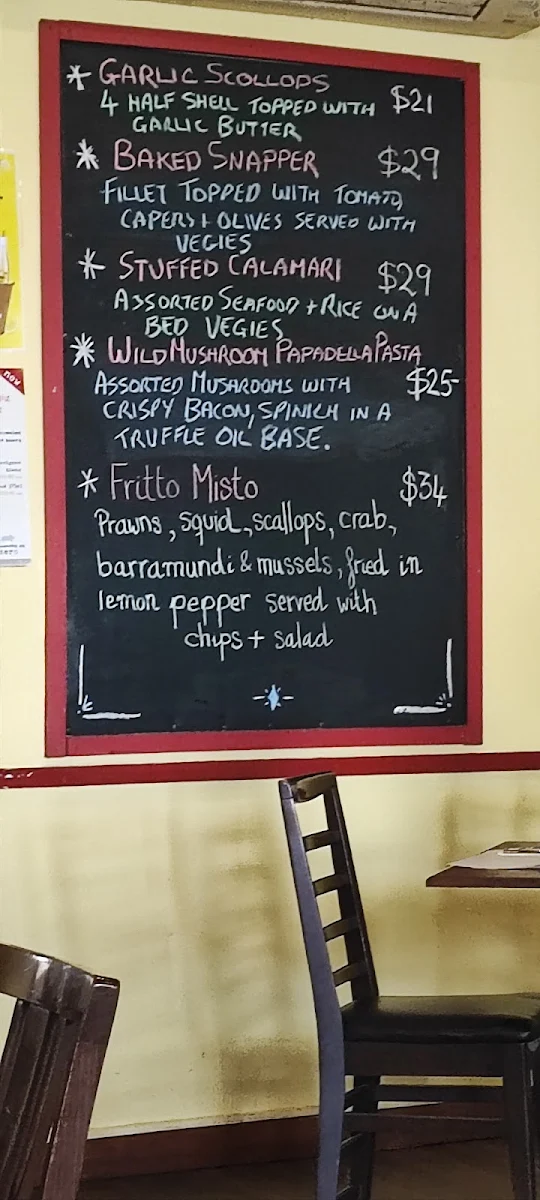 * GARLIC SCOLLOPS
4 HALF SHELL TOPPED WITH $21
GARLIC BUTTER
* BAKED SNAPPER $29
FILLET TOPPED WITH TOMATO,
CAPERS + OLIVES SERVED WITH
VEGIES
* STUFFED CALAMARI $29
ASSORTED SEAFOOD + RICE ON A
BED VEGIES
* WILD MUSHROOM PAPADELLA PASTA
ASSORTED MUSHROOMS WITH $25-
CRISPY BACON, SPINICH IN A
TRUFFLE OIL BASE.
* Fritto Misto $34
Prawns, squid, scallops, crab,
barramundi & mussels, fried in
lemon pepper served with
chips + salad
new